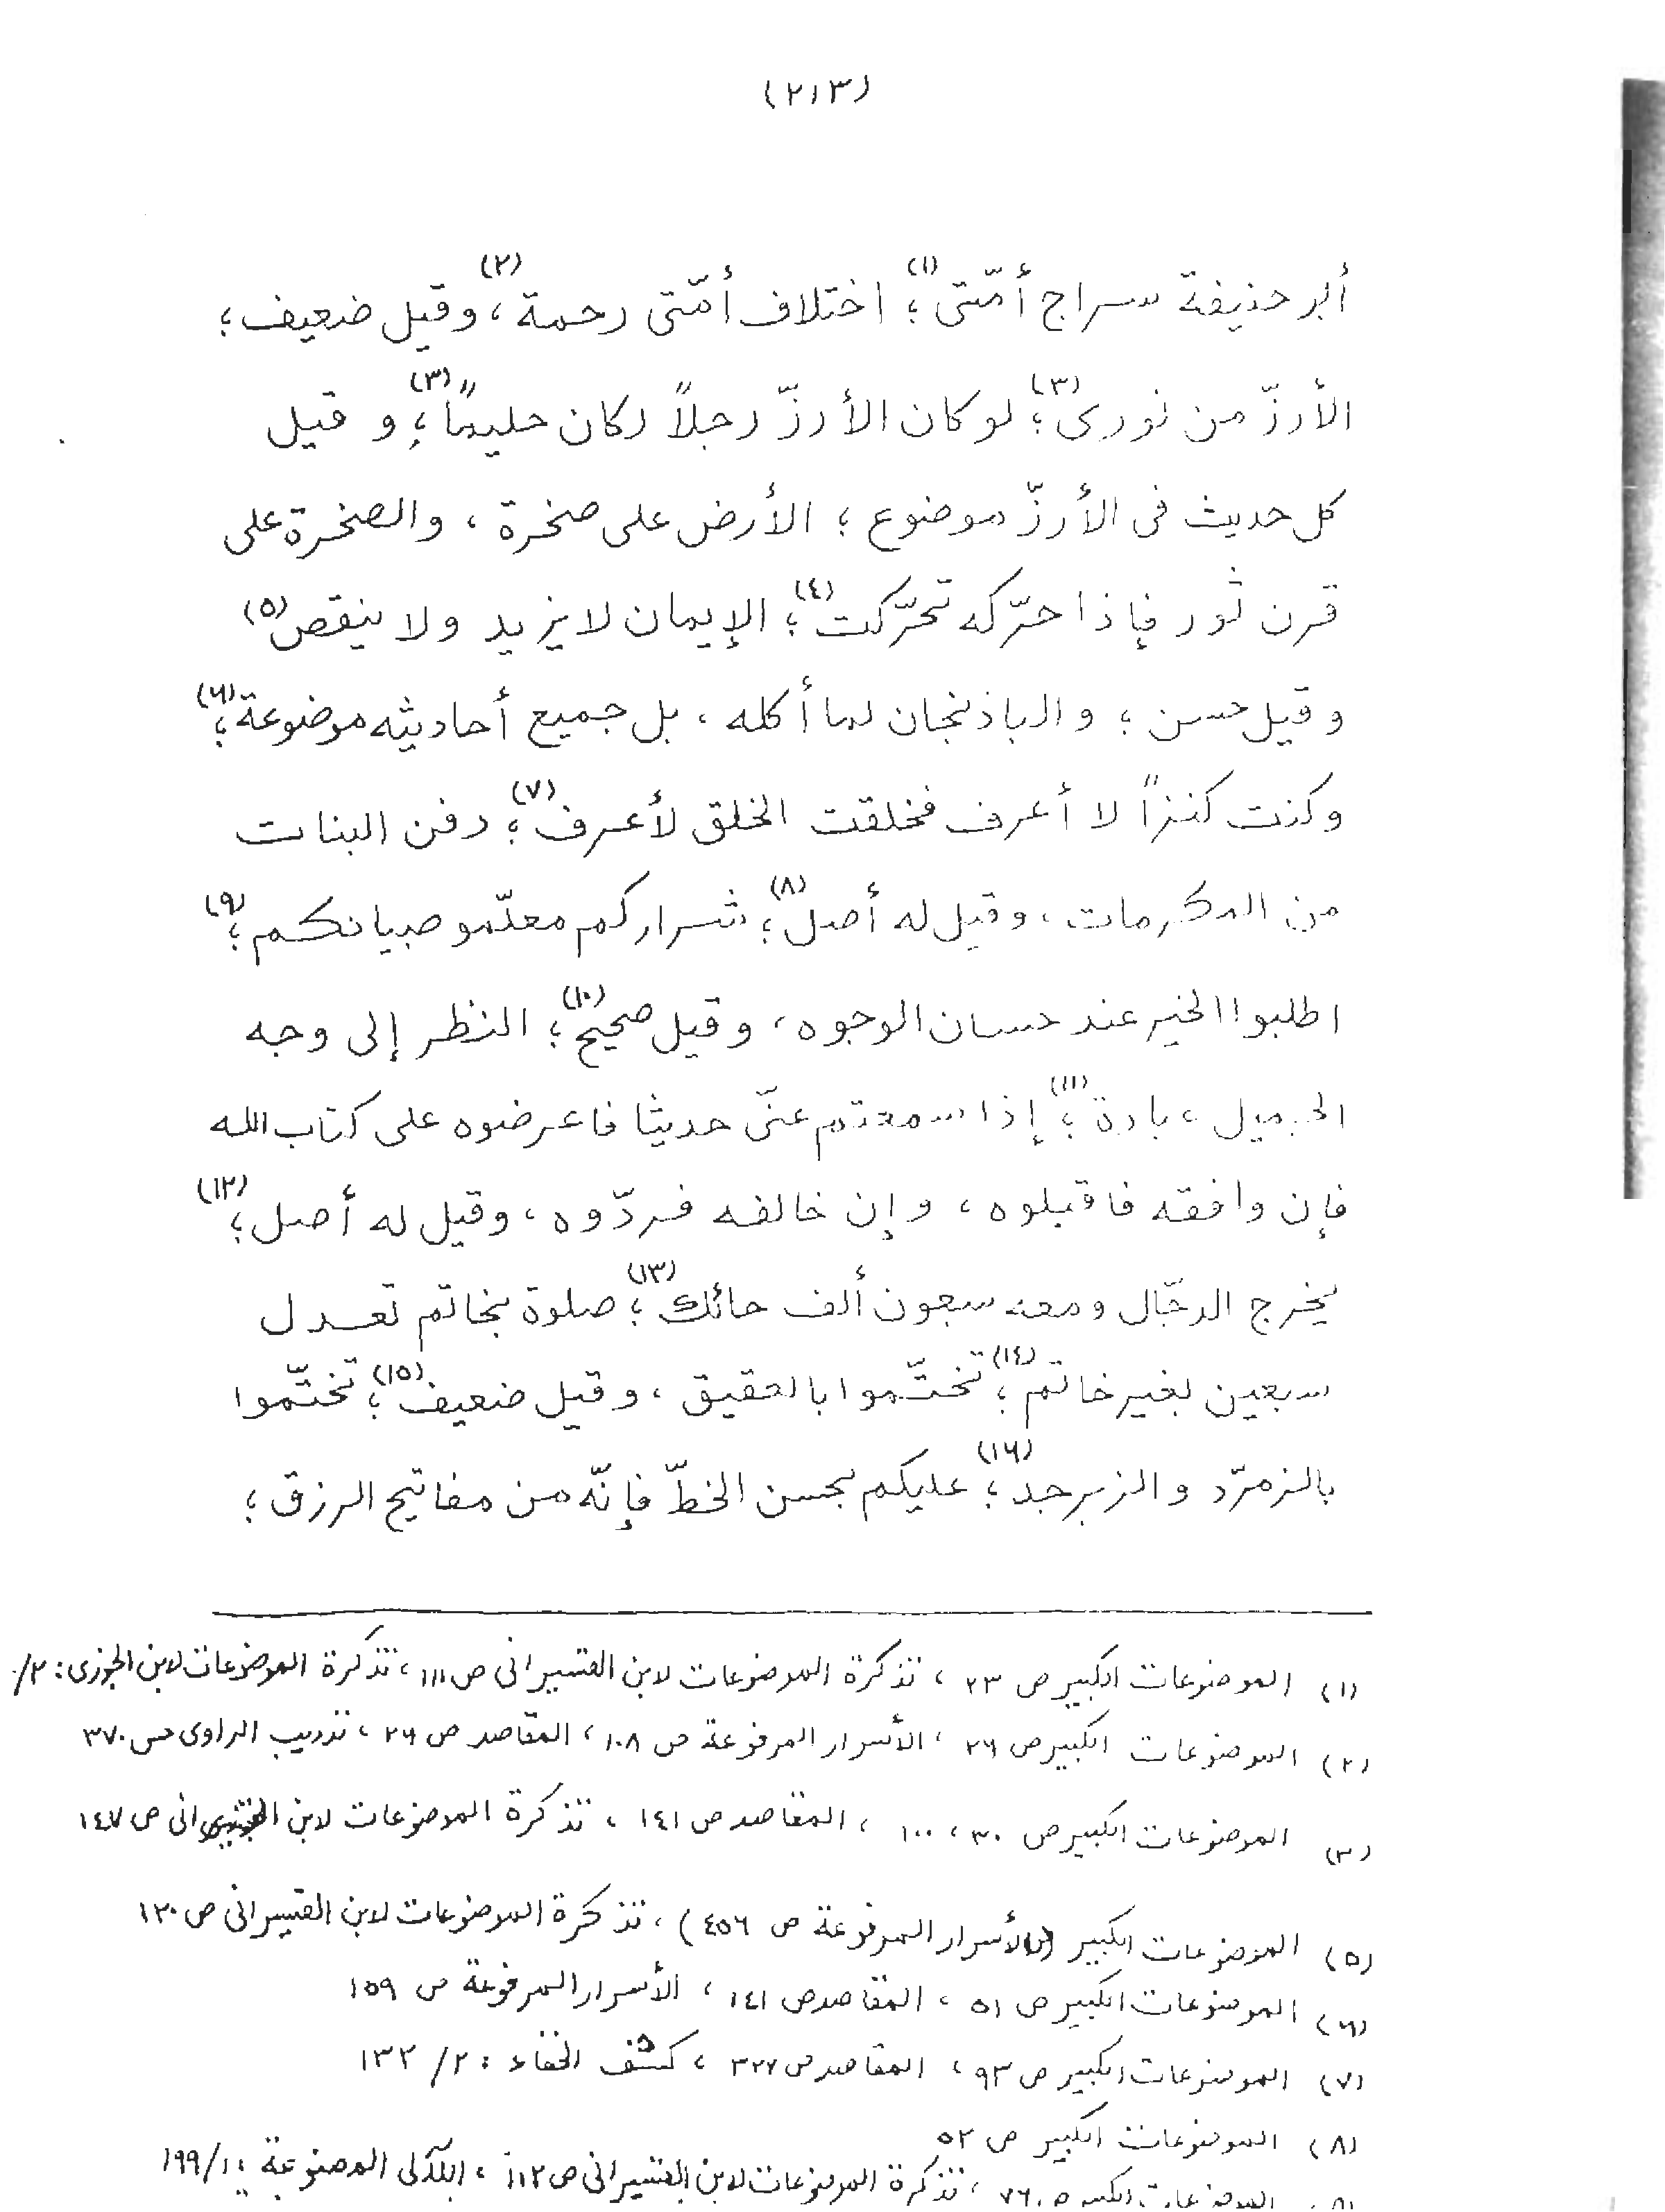 (٢١٣)
أبو حنيفة سراج أمّتى (١)؛ اختلاف أمّتى رحمة (٢)، وقيل ضعيف؛
الأرزّ من نورى (٣)؛ لو كان الأرزّ رجلاً لكان حليماً (٣)؛ و قيل
كل حديث فى الأرزّ موضوع؛ الأرض على صخرة، والصخرة على
قرن ثور فإذا حرّكه تحرّكت (٤)؛ الإيمان لا يزيد ولا ينقص (٥)
وقيل حسن؛ و الباذنجان لما أكله، بل جميع أحاديثه موضوعة (٦)؛
وكنت كنزاً لا أعرف فخلقت الخلق لأعرف (٧)؛ دفن البنات
من المكرمات، وقيل له أصل (٨)؛ شراركم معلّمو صبيانكم (٩)؛
اطلبوا الخير عند حسان الوجوه، وقيل صحيح (١٠)؛ النظر إلى وجه
الجميل، بادة (١١)؛ إذا سمعتم عنّى حديثا فاعرضوه على كتاب الله
فإن وافقه فاقبلوه، وإن خالفه فردّوه، وقيل له أصل (١٢)؛
يخرج الدجّال ومعه سبعون ألف حائك (١٣)؛ صلوة بخاتم تعدل
سبعين بغير خاتم (١٤)؛ تختّموا بالعقيق، وقيل ضعيف (١٥)؛ تختّموا
بالزمرّد والزبرجد (١٦)؛ عليكم بحسن الخطّ فإنّه من مفاتيح الرزق؛
(١) الموضوعات الكبير ص ٢٣، تذكرة الموضوعات لابن القيسرانى ص ١١١، تذكرة الموضوعات لابن الجوزى: ٢/
(٢) الموضوعات الكبير ص ٢٦، الأسرار المرفوعة ص ١٠٨، المقاصد ص ٢٦، تدريب الراوى ص ٣٧٠
(٣) الموضوعات الكبير ص ٣٠، ١٠٠، المقاصد ص ١٤١، تذكرة الموضوعات لابن القيسرانى ص ١٤٧
(٥) الموضوعات الكبير (الأسرار المرفوعة ص ٤٥٦)، تذكرة الموضوعات لابن القيسرانى ص ١٢٠
(٦) الموضوعات الكبير ص ٥١، المقاصد ص ١٤١، الأسرار المرفوعة ص ١٥٩
(٧) الموضوعات الكبير ص ٩٣، المقاصد ص ٣٢٧، كشف الخفاء: ٢/ ١٣٢
(٨) الموضوعات الكبير ص ٥٢
(٩) الموضوعات الكبير ص ٧٦، تذكرة الموضوعات لابن القيسرانى ص ١١٢، اللآلى المصنوعة: ١/ ١٩٩